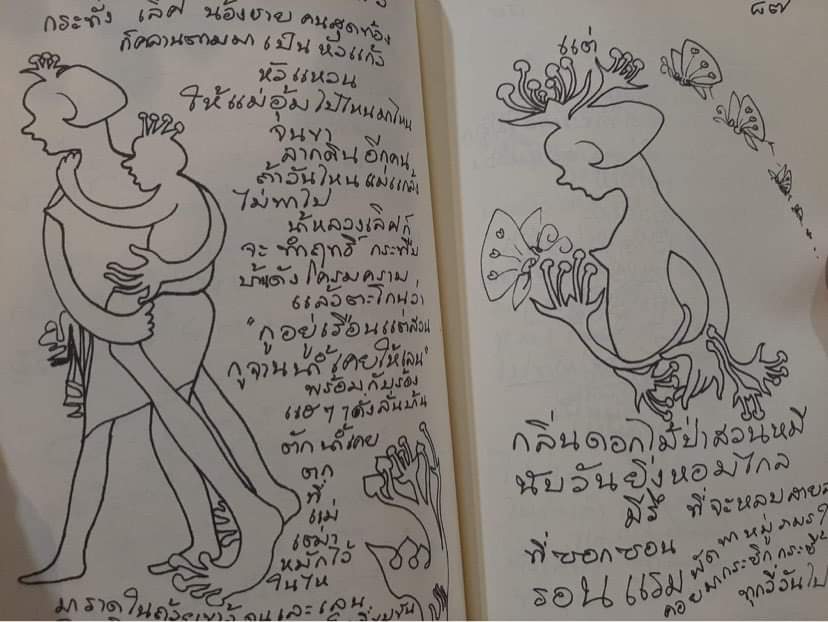 กระทั่ง เลิศ น้องชาย คนสุดท้อง
ก็คลานตามมา เป็น หัวแก้ว
หัวแหวน
ให้แม่อุ้มไปไหนมาไหน
จนขา
ลากดิน อีกคน
ถ้าวันไหน แม่แกล้ง
ไม่พาไป
น้าหลวงเลิศก็
จะ ทำฤทธิ์ กระทืบ
บ้านดัง โครมคราม
แล้วตะโกนว่า
"กูอยู่เรือนแต่
พร้อมกับร้อง
แง ๆ ดังลั่นบ้าน
ตักน้ำเคย
ตุก
ที่
แม่
หมักไว้
ในไห
มาราดในถ้วย
๘๗
แต่
กลิ่นดอกไม้ป่าสวนหมี
นับวันยิ่งหอมไกล
มีรึ ที่จะหลบสาย
ที่ซอกซอน
รอนแรม พัดพาหมู่ภมร
คอยมากระซิก กระซี้
ทุกวี่วันไป